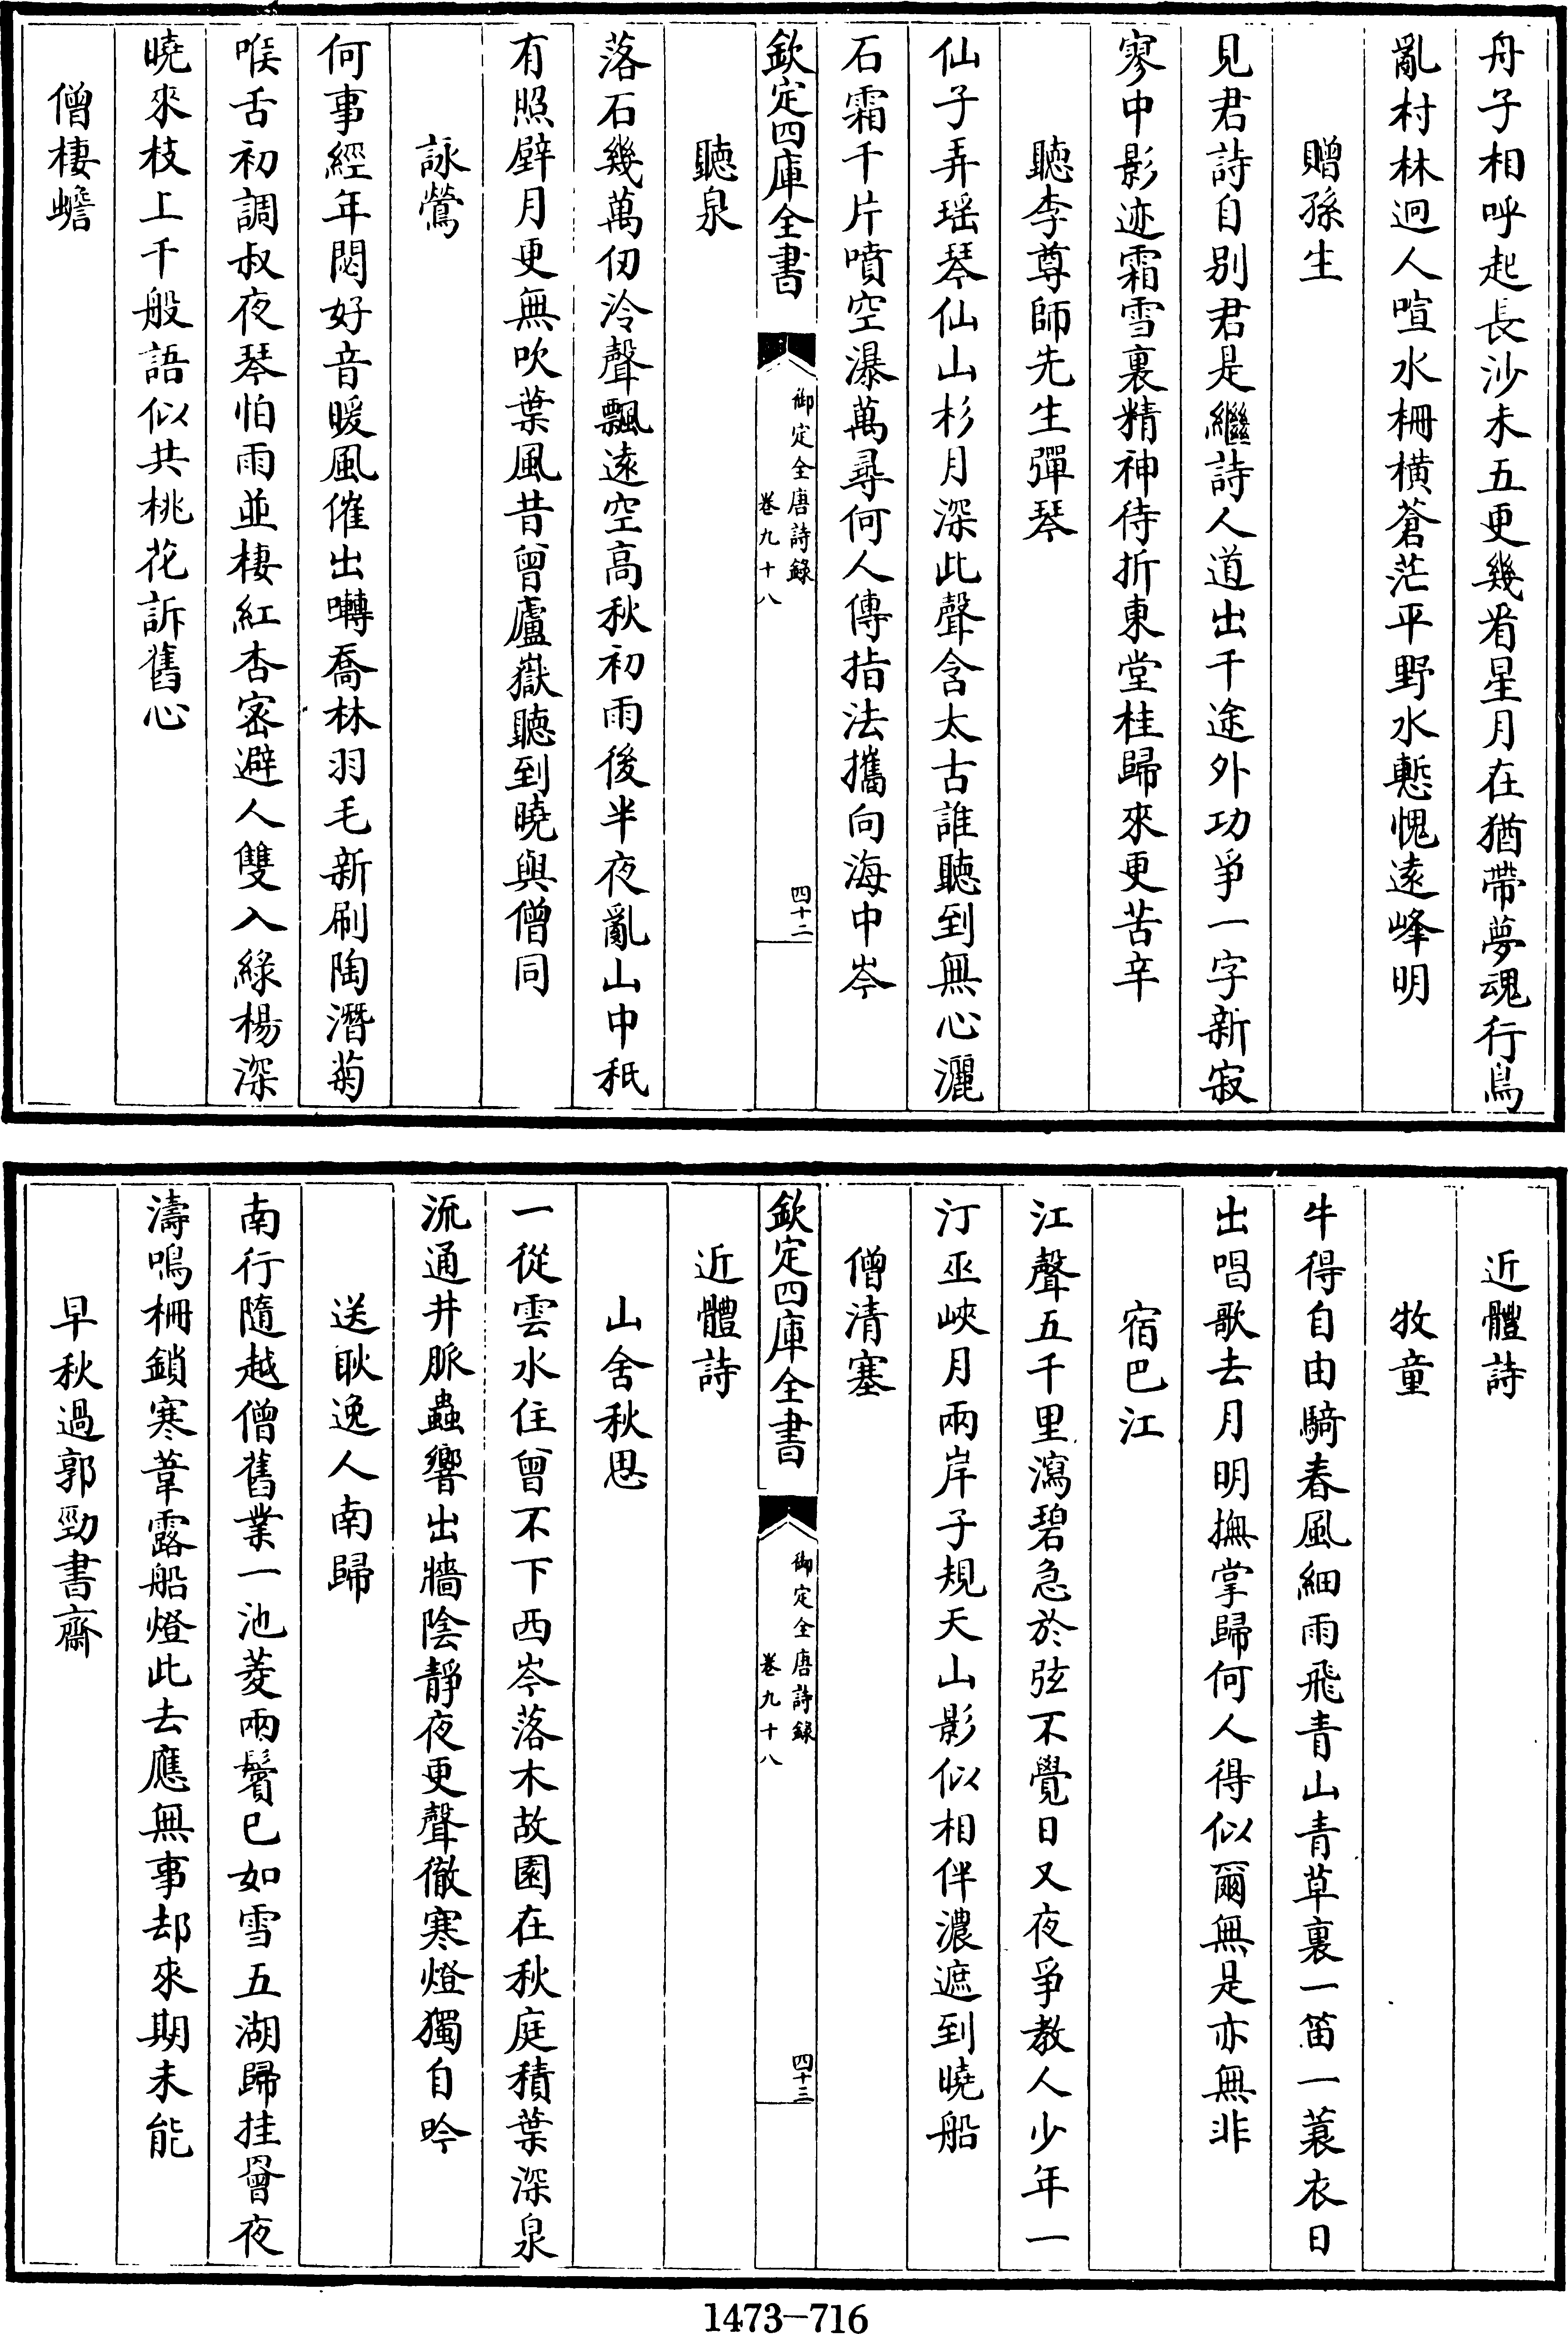 舟子相呼起長沙未五更幾看星月在猶帶夢魂行鳥
亂村林迥人喧水柵橫蒼茫平野水慙愧遠峰明
贈孫生
見君詩自别君是繼詩人道出千途外功爭一字新寂
寥中影迹霜雪裏精神待折東堂桂歸來更苦辛
聽李尊師先生彈琴
仙子弄瑶琴仙山杉月深此聲含太古誰聽到無心灑
石霜千片噴空瀑萬尋何人傳指法攜向海中岑
欽定四庫全書
御定全唐詩錄
卷九十八
四十二
聽泉
落石幾萬仞泠聲飄遠空高秋初雨後半夜亂山中秖
有照壁月更無吹葉風昔曾廬嶽聽到曉與僧同
詠鶯
何事經年閟好音暖風催出囀喬林羽毛新刷陶潛菊
喉舌初調叔夜琴怕雨並棲紅杏密避人雙入綠楊深
曉來枝上千般語似共桃花訴舊心
僧棲蟾
近體詩
牧童
牛得自由騎春風細雨飛青山青草裏一笛一蓑衣日
出唱歌去月明撫掌歸何人得似爾無是亦無非
宿巴江
江聲五千里瀉碧急於弦不覺日又夜爭教人少年一
汀巫峽月兩岸子規天山影似相伴濃遮到曉船
僧清塞
欽定四庫全書
御定全唐詩錄
卷九十八
四十三
近體詩
山舍秋思
一從雲水住曾不下西岑落木故園在秋庭積葉深泉
流通井脈蟲響出牆陰靜夜更聲徹寒燈獨自吟
送耿逸人南歸
南行隨越僧舊業一池菱兩鬢已如雪五湖歸挂罾夜
濤鳴柵鎖寒葦露船燈此去應無事却來期未能
早秋過郭勁書齋
1473-716